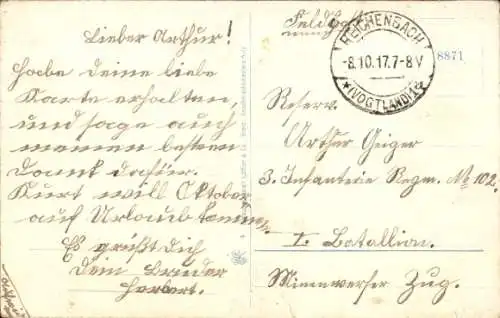 Lieber Arthur!
Habe deine liebe
Karte erhalten,
und sage auch
meinen besten
Dank dafür.
Kurt will Oktober
auf Urlaub kommen.
Es grüßt dich
dein Bruder
Herbert.
Feldpost
REICHENBACH
-8.10.17.7-8V
(VOGTLAND)
8871
Reserv.
Arthur Geiger
3. Infanterie Regm. No 102.
I. Batallion.
Minenwerfer Zug.